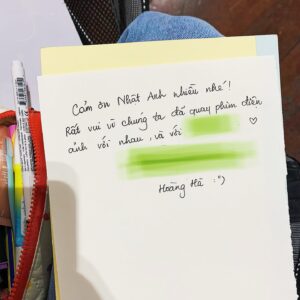 Cảm ơn Nhật Anh nhiều nhé!
Rất vui vì chúng ta đã quay phim điện
ảnh với nhau, và với ♡
Hoàng Hà :")